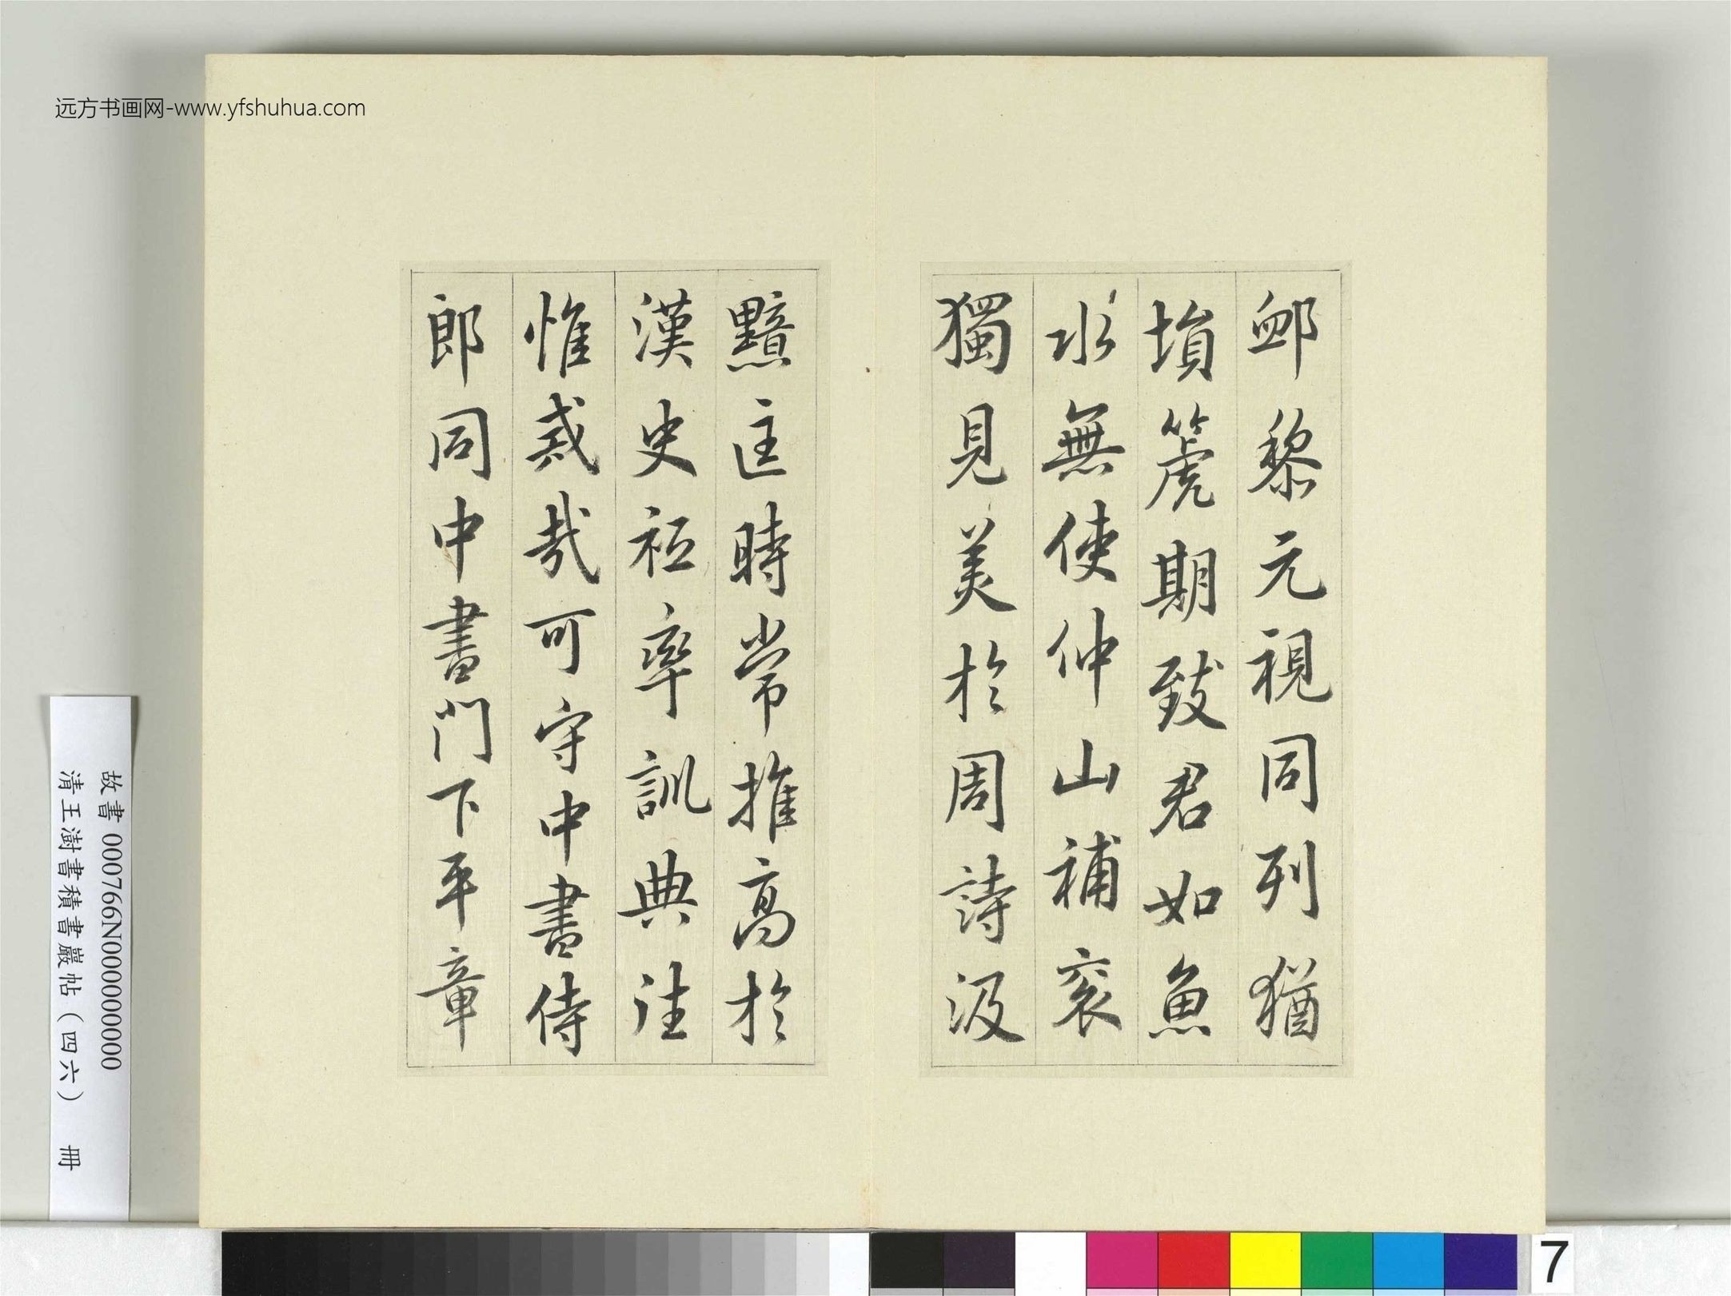 远方书画网-www.yfshuhua.com
卹黎元視同列猶
塤箎期致君如魚
水無使仲山補袞
獨見美於周詩汲
黯匡時常推高於
漢史祗率訓典往
惟戒哉可守中書侍
郎同中書門下平章
故書 000766N000000000
清王澍書積書巖帖(四六) 冊
7